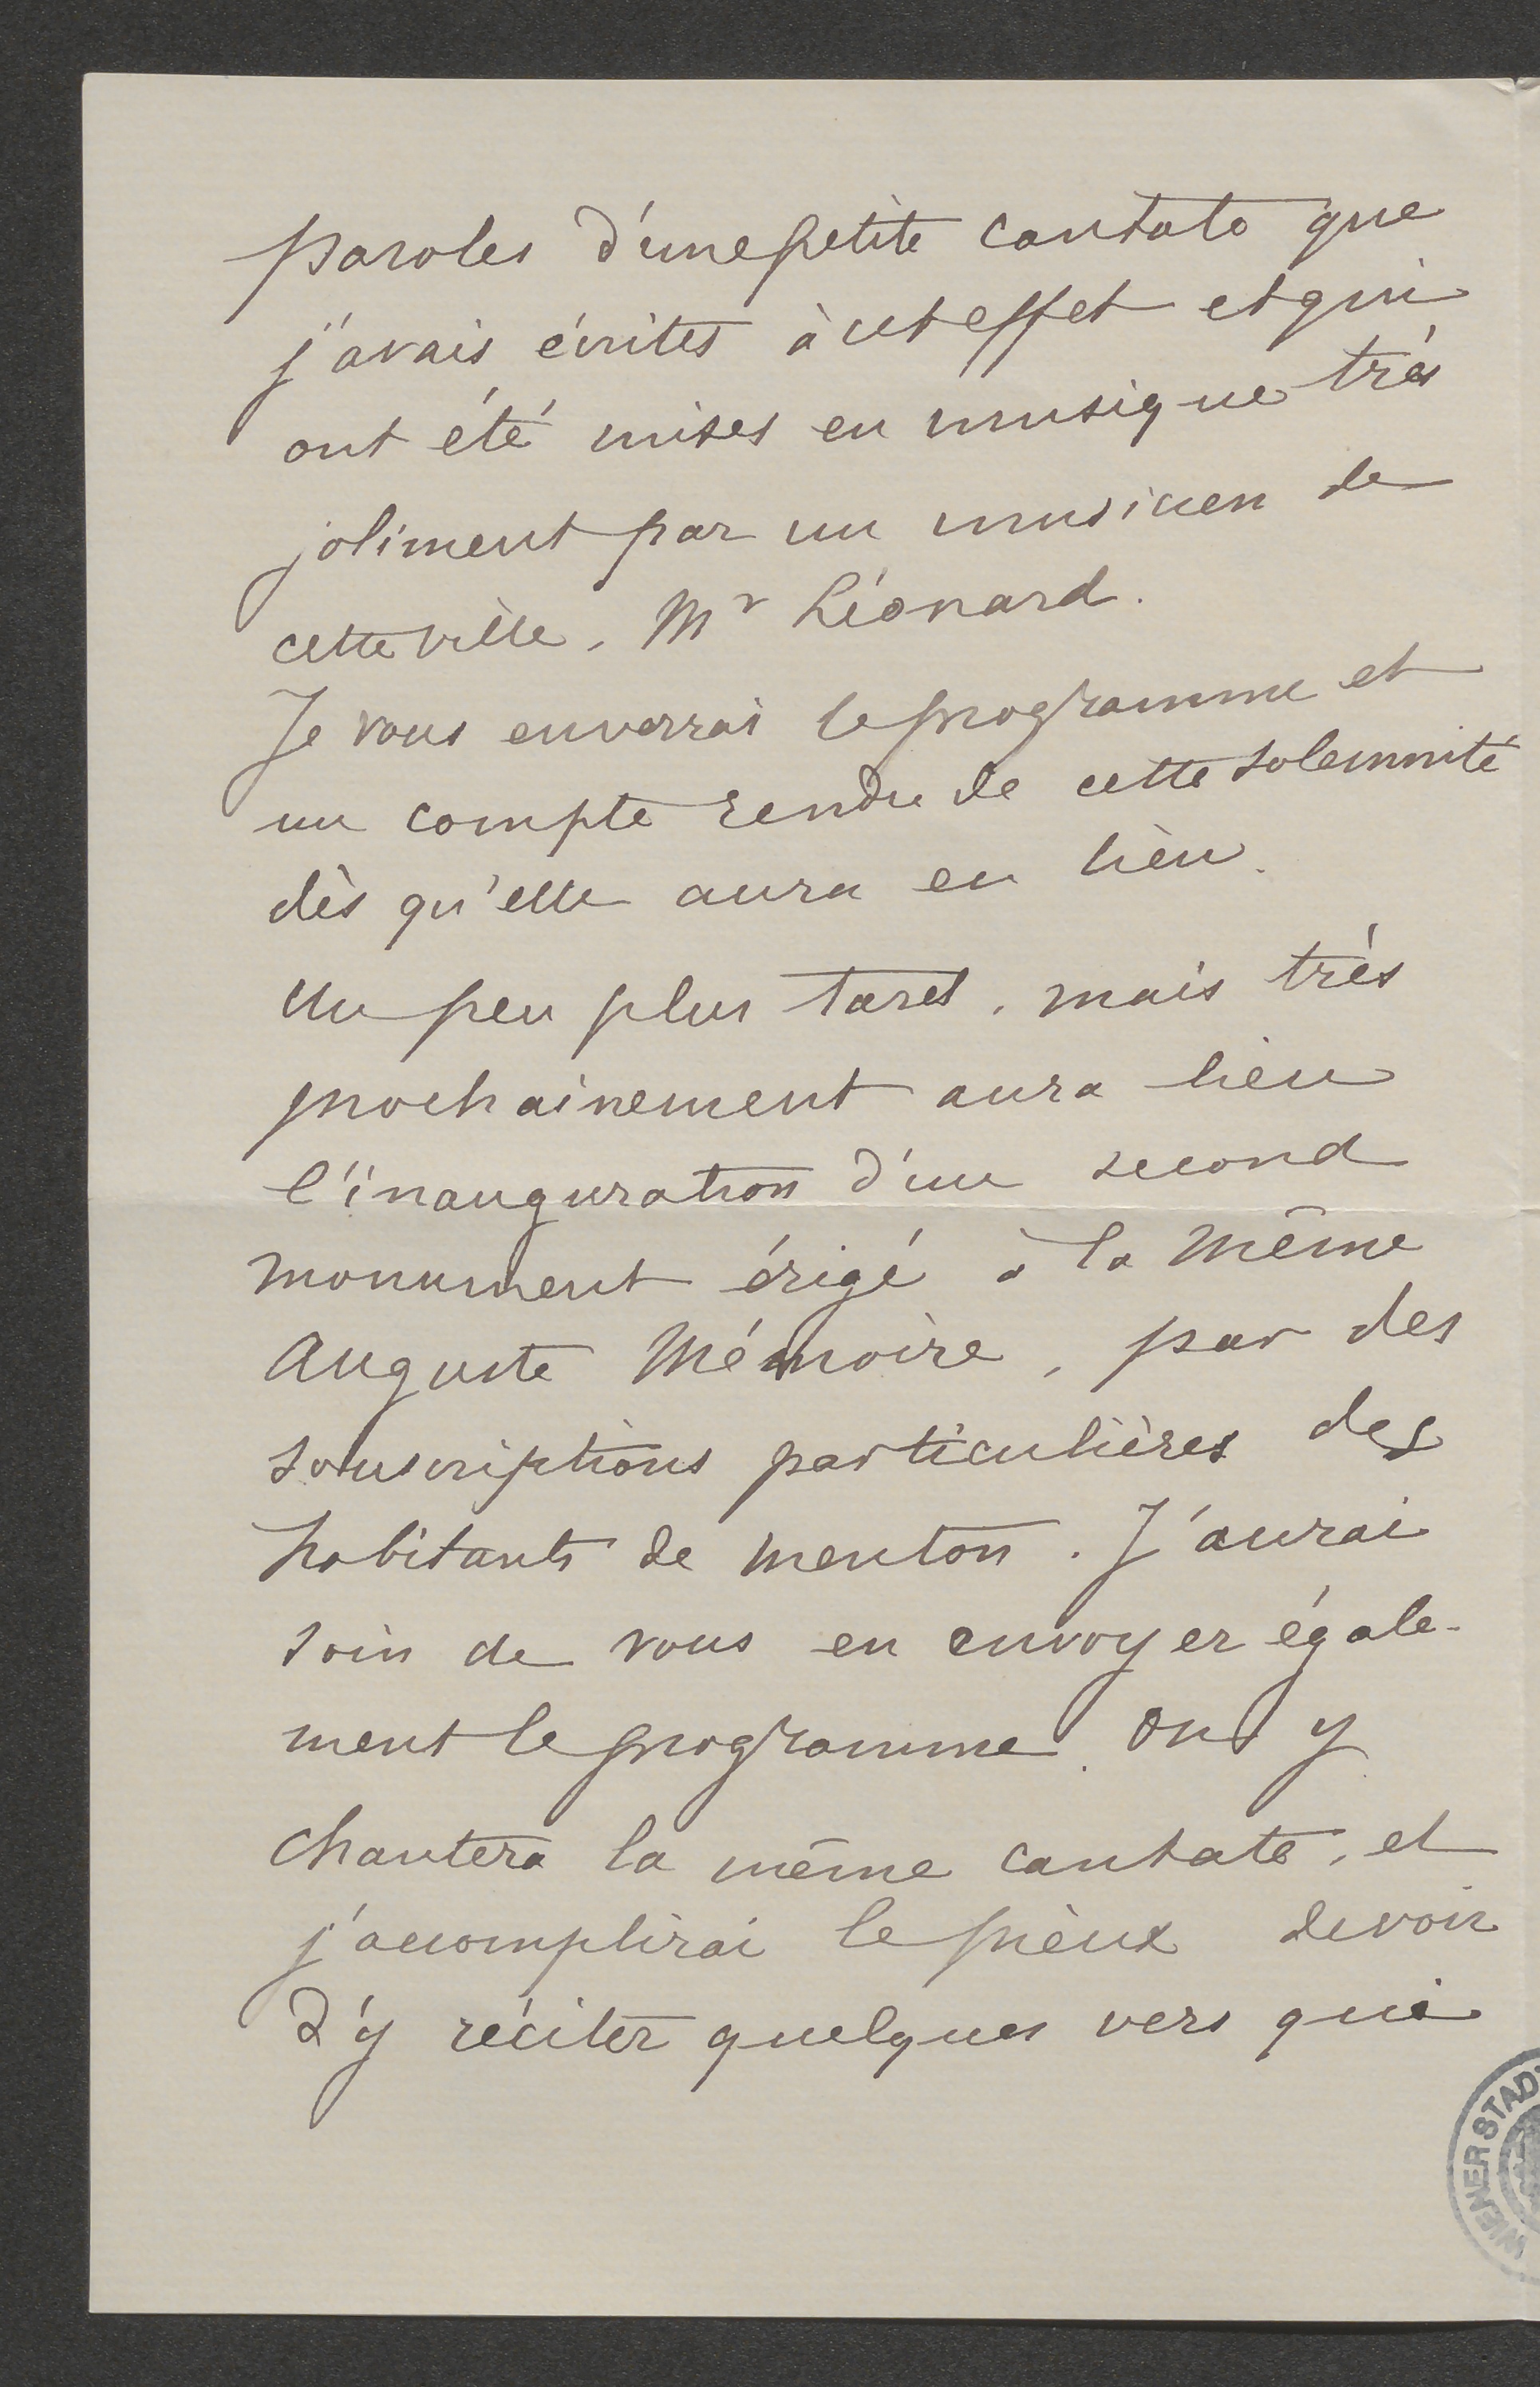 paroles d'une petite cantate que
j'avais écrites à cet effet et qui
ont été mises en musique très
joliment par un musicien de
cette ville, Mr Léonard.
Je vous enverrai le programme et
un compte rendu de cette solemnité
dès qu'elle aura eu lieu.
Un peu plus tard, mais très
prochainement aura lieu
l'inauguration d'un second
monument érigé à la même
Auguste Mémoire, par des
souscriptions particulières des
habitants de Menton. J'aurai
soin de vous en envoyer égale-
ment le programme. On y
chantera la même cantate, et
j'accomplirai le pieux devoir
d'y réciter quelques vers que
WIENER STAD